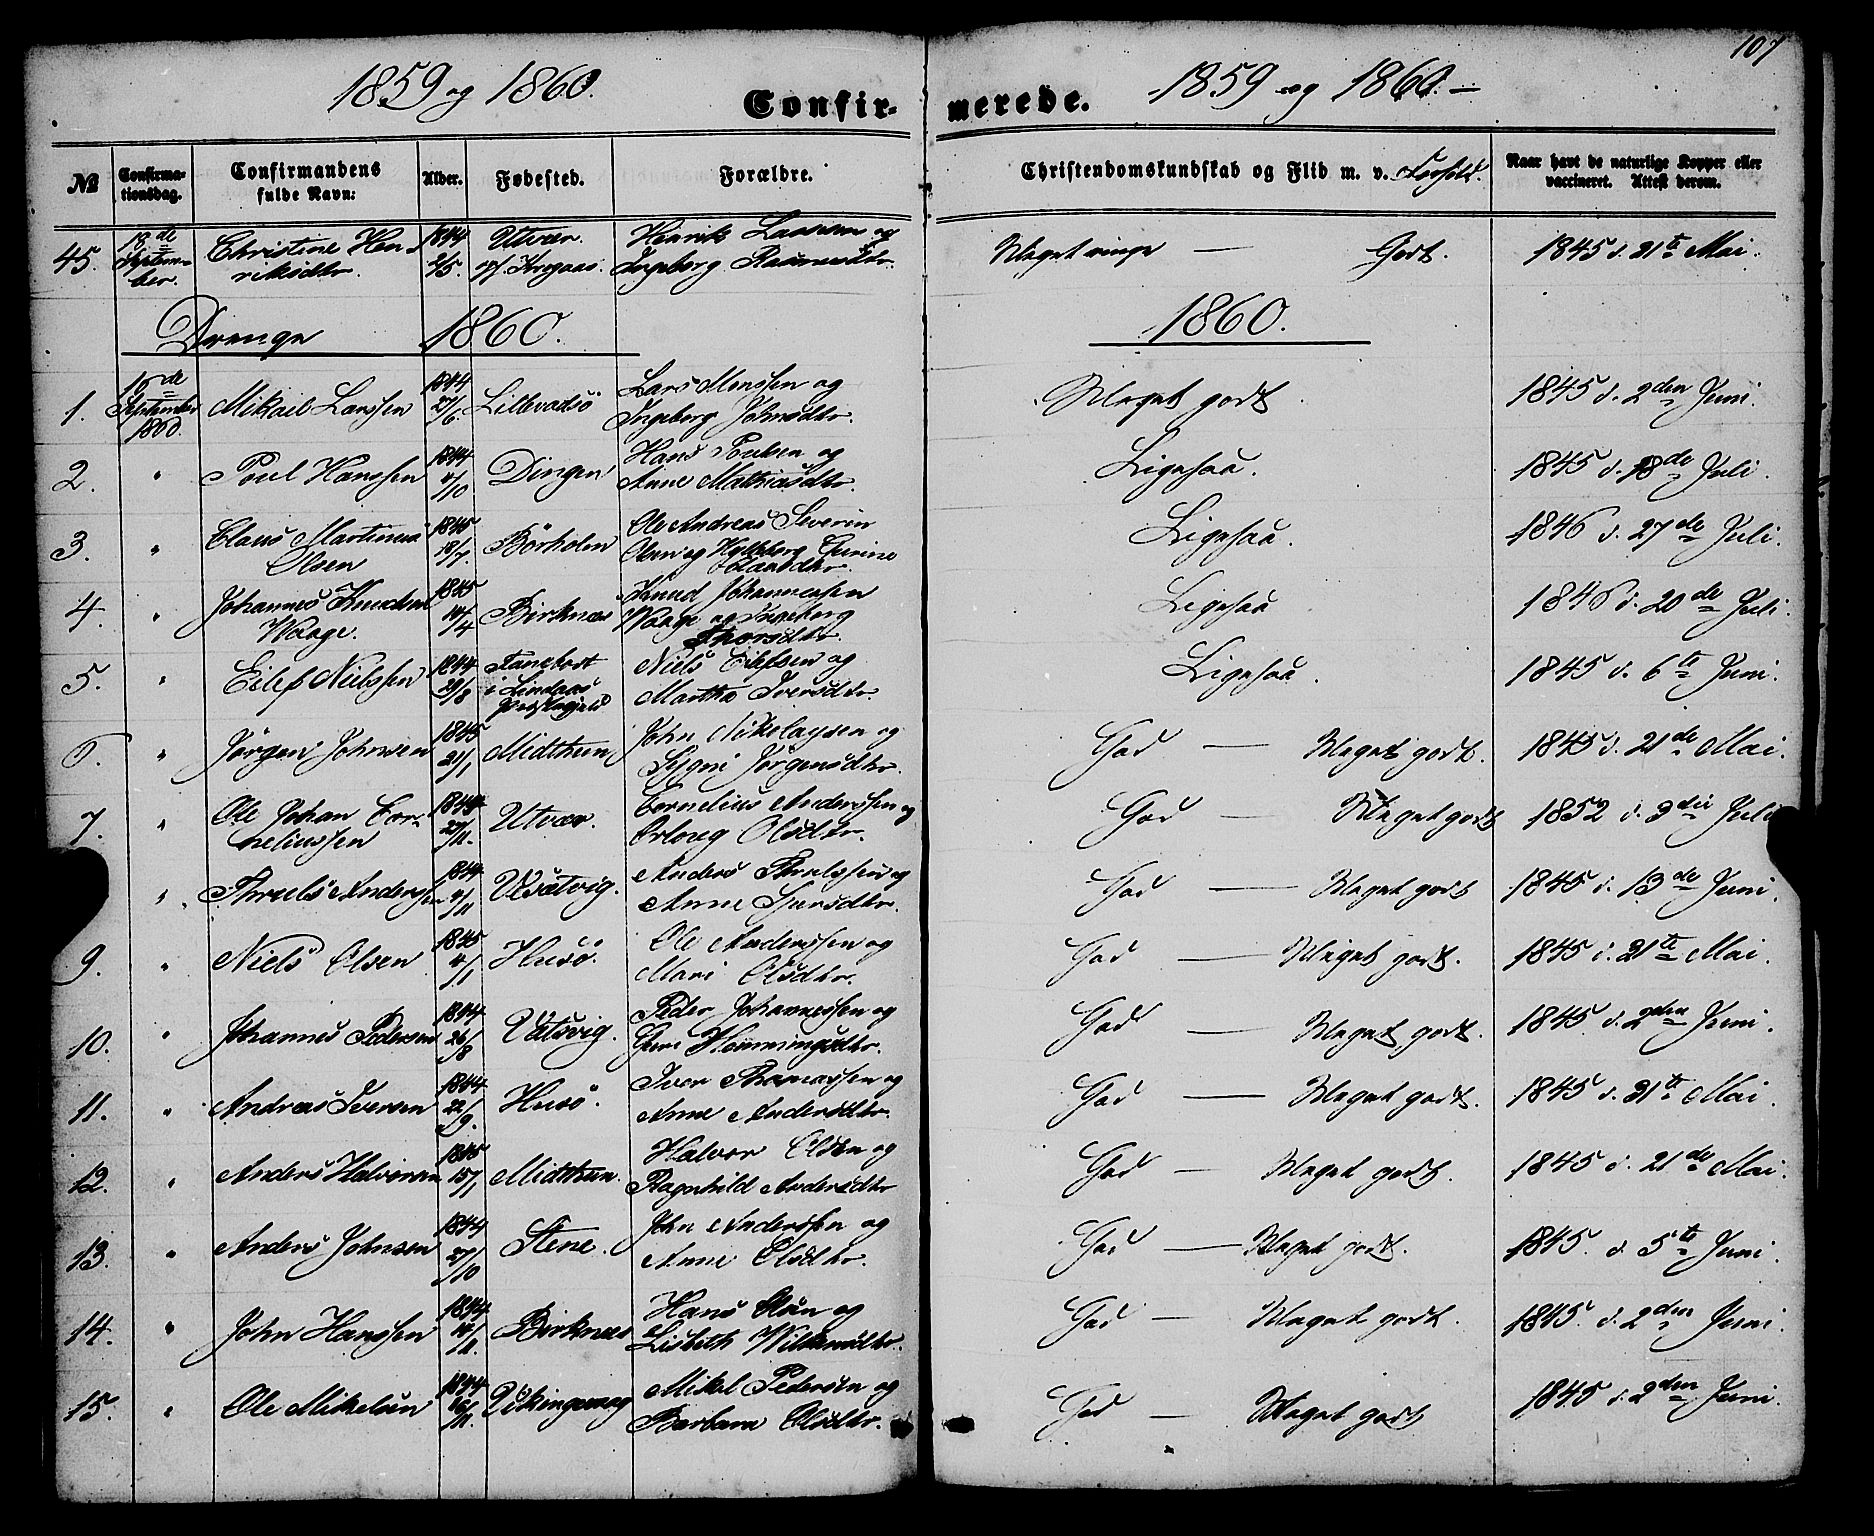 107
1859 og 1860.
Confirmerede.
1859 og 1860.
№ Confirmationsdag. Confirmandens fulde Navn: Alder. Fødested. Forældre. Christendomskundskab og Flid m. v. Forhold. Naar havt de naturlige Kopper eller vaccineret. Attest derom.
45. 18de September. Christine Henriksdtr. 1844 2/5. Utvær Henrik Larssen og Ingeborg Rasmusdtr. Meget ringe — Godt. 1845 d. 21te Mai.
Drenge 1860. 1860.
1. 16de September 1860. Mikael Larssen 1844 27/6. Lillevadsö Lars Monssen og Ingeborg Johnsdtr. Meget godt. 1845 d. 2den Juni.
2. " Poul Hanssen 1844 4/10 Dingen Hans Poulsen og Anne Mathiasdtr. Ligesaa. 1845 d. 18de Juli.
3. " Claus Martinus Olsen 1845 18/7. Börholm Ole Andreas Severin Olsen og Gurine Clausdtr. Ligesaa. 1846 d. 27de Juli.
4. " Johannes Knudsen Waage. 1845 14/4 Birknæs Knud Johannessen Waage og Ingeborg Thorsdtr. Ligesaa 1846 d. 20de Juli.
5. " Eilef Nielssen 1844 29/8 i Lindaas Præstegjeld Niels Eilefsen og Martha Iversdtr. Ligesaa. 1845 d. 6te Juni.
6. " Jørgen Johnsen 1845 21/1 Midtthun John Nikolaysen og Sygni Jørgensdtr. God — Meget godt. 1845 d. 21de Mai.
7. " Ole Johan Corneliussen 1844 27/11. Utvær. Cornelius Anderssen og Olsdtr. God — Meget godt 1852 d. 3die Juli
" Thruels Anderssen 1844 4/11 Anders Thruelssen og Anne God — Meget godt 1845 d. 13de Juni.
9. " Niels Olsen 1845 4/1 Husö. Ole Anderssen og Mari Olsdtr. God — Meget godt. 1845 d. 21te Mai.
10. " Johannes Pedersen 1844 26/8 Peder Johannessen og Guri Hemmingsdtr. God — Meget godt. 1845. d. 2den Juni.
11. " Andreas Iversen 1844 22/9. Husö. Iver Thomassen og Anne Andersdtr. God — Meget godt. 1845 d. 21te Mai.
12. " Anders Halvorsen 1845 15/1 Midtthun. Halvor Olsen og Ragnhild Andersdtr God — Meget godt. 1845 d. 21de Mai.
13. " Anders Johnsen 1844 27/10 Stene. John Anderssen og Anne Olsdtr. God — Meget godt. 1845. d. 5te Juni.
14. " John Hanssen 1844 14/11. Birknæs Hans Olsen og Lisbeth Willumsdtr. God — Meget godt. 1845. d. 2den Juni.
15. " Ole Mikelsen 1844 16/11. Vikingevaag Mikel Pedersen og Barbara Olsdtr. God — Meget godt 1845 d. 2den Juni.